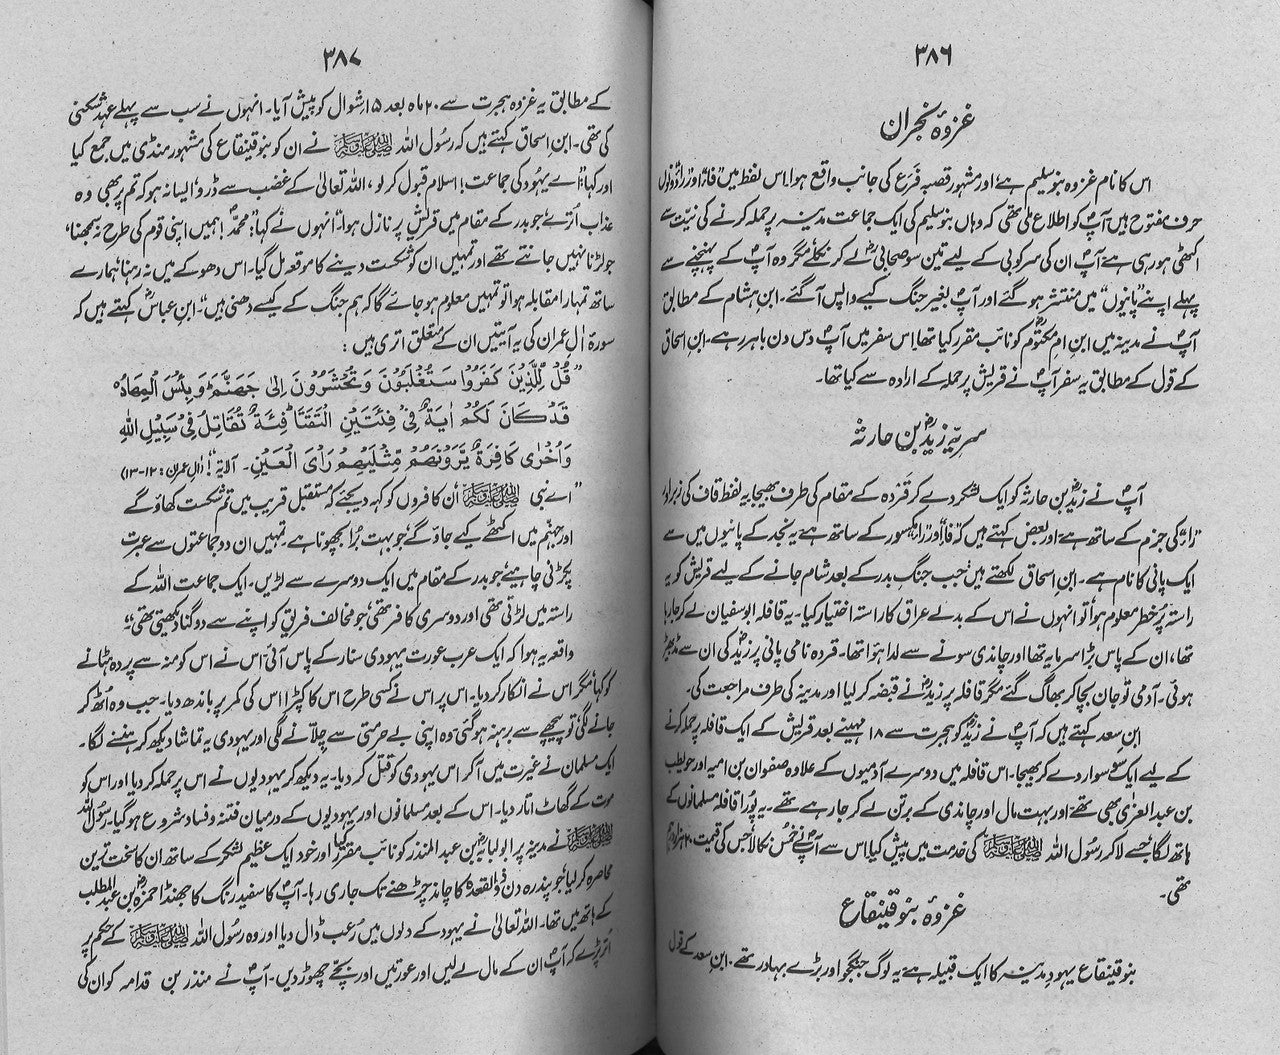 ۳۸۶
غزوۂ نجران
اس کا نام غزوہ بنو سلیم ہے اور مشہور قصبہ فَرَع کی جانب واقع ہوا۔ اس لفظ میں "فا" اور "را" دونوں
حرف مفتوح ہیں آپؐ کو اطلاع ملی تھی کہ وہاں بنو سلیم کی ایک جماعت مدینہ پر حملہ کرنے کی نیت سے
اکٹھی ہو رہی ہے۔ آپؐ ان کی سرکوبی کے لیے تین سو صحابیؓ لے کر نکلے مگر وہ آپؐ کے پہنچنے سے
پہلے اپنے "پانیوں" میں منتشر ہو گئے اور آپؐ بغیر جنگ کیے واپس آ گئے۔ ابنِ ہشام کے مطابق
آپؐ نے مدینہ میں ابنِ امِ مکتومؓ کو نائب مقرر کیا تھا۔ اس سفر میں آپؐ دس دن باہر رہے۔ ابنِ اسحاق
کے قول کے مطابق یہ سفر آپؐ نے قریش پر حملہ کے ارادہ سے کیا تھا۔
سریہ زیدؓ بن حارثہ
آپؐ نے زیدؓ بن حارثہ کو ایک لشکر دے کر قَردہ کے مقام کی طرف بھیجا یہ لفظ قاف کی زبر اور
"را" کی جزم کے ساتھ ہے اور بعض کہتے ہیں کہ "فا" اور "را" مکسور کے ساتھ ہے۔ یہ نجد کے پانیوں میں سے
ایک پانی کا نام ہے۔ ابنِ اسحاق لکھتے ہیں: جب جنگِ بدر کے بعد شام جانے کے لیے قریش کو یہ
راستہ پُرخطر معلوم ہوا تو انہوں نے اس کے بدلے عراق کا راستہ اختیار کیا۔ یہ قافلہ ابو سفیان لے کر جا رہا
تھا، ان کے پاس بڑا سرمایہ تھا اور چاندی سونے سے لدا ہوا تھا۔ قردہ نامی پانی پر زیدؓ کی ان سے مڈبھیڑ
ہوئی۔ آدمی تو جان بچا کر بھاگ گئے مگر قافلہ پر زیدؓ نے قبضہ کر لیا اور مدینہ کی طرف مراجعت کی۔
ابنِ سعد کہتے ہیں کہ آپؐ نے زیدؓ کو ہجرت سے ۱۸ مہینے بعد قریش کے ایک قافلہ پر حملہ کرنے
کے لیے ایک سو سوار دے کر بھیجا۔ اس قافلہ میں دوسرے آدمیوں کے علاوہ صفوان بن امیہ اور حویطب
بن عبدالعزیٰ بھی تھے اور بہت مال اور چاندی کے برتن لے کر جا رہے تھے۔ یہ پورا قافلہ مسلمانوں کے
ہاتھ لگا جسے لا کر رسول اللہ ﷺ کی خدمت میں پیش کیا۔ اس سے آپؐ نے خُمُس نکالا جس کی قیمت ۲۰ ہزار درہم
تھی۔
غزوۂ بنو قینقاع
بنو قینقاع یہودِ مدینہ کا ایک قبیلہ ہے یہ لوگ جنگجو اور بڑے بہادر تھے۔ ابنِ سعد کے قول
۳۸۷
کے مطابق یہ غزوہ ہجرت سے ۲۰ ماہ بعد ۱۵ شوال کو پیش آیا۔ انہوں نے سب سے پہلے عہد شکنی
کی تھی۔ ابنِ اسحاق کہتے ہیں کہ رسول اللہ ﷺ نے ان کو بنو قینقاع کی مشہور منڈی میں جمع کیا
اور کہا: "اے یہود کی جماعت! اسلام قبول کر لو، اللہ تعالیٰ کے غضب سے ڈرو، ایسا نہ ہو کہ تم پر بھی وہ
عذاب اُترے جو بدر کے مقام میں قریش پر نازل ہوا"۔ انہوں نے کہا: "محمدؐ! ہمیں اپنی قوم کی طرح نہ سمجھنا،
جو لڑنا نہیں جانتے تھے اور تمہیں ان کو شکست دینے کا موقعہ مل گیا۔ اس دھوکے میں نہ رہنا، ہمارے
ساتھ تمہارا مقابلہ ہوا تو تمہیں معلوم ہو جائے گا کہ ہم جنگ کے کیسے دھنی ہیں"۔ ابنِ عباسؓ کہتے ہیں کہ
سورۃ اٰلِ عمران کی یہ آیتیں ان کے متعلق اتری ہیں:
"قُلْ لِّلَّذِیْنَ کَفَرُوْا سَتُغْلَبُوْنَ وَتُحْشَرُوْنَ اِلٰی جَھَنَّمَ وَبِئْسَ الْمِھَادُ
قَدْ کَانَ لَکُمْ اٰیَۃٌ فِیْ فِئَتَیْنِ الْتَقَتَا فِئَۃٌ تُقَاتِلُ فِیْ سَبِیْلِ اللہِ
وَاُخْرٰی کَافِرَۃٌ یَّرَوْنَھُمْ مِّثْلَیْھِمْ رَاْیَ الْعَیْنِ۔ الاٰیۃ"! (اٰل عمران: ۱۲-۱۳)
"اے نبی ﷺ ان کافروں کو کہہ دیجئے کہ مستقبل قریب میں تم شکست کھاؤ گے
اور جہنم میں اکٹھے کیے جاؤ گے جو بہت بُرا بچھونا ہے۔ تمہیں ان دو جماعتوں سے عبرت
پکڑنی چاہیئے جو بدر کے مقام میں ایک دوسرے سے لڑیں۔ ایک جماعت اللہ کے
راستہ میں لڑتی تھی اور دوسری کافر تھی، جو مخالف فریق کو اپنے سے دو گنا دیکھتی تھی"۔
واقعہ یہ ہوا کہ ایک عرب عورت یہودی سنار کے پاس آئی، اس نے اس کو منہ سے پردہ ہٹانے
کو کہا، مگر اس نے انکار کر دیا۔ اس پر اس نے کسی طرح اس کا کپڑا اس کی کمر پر باندھ دیا۔ جب وہ اُٹھ کر
جانے لگی، تو پیچھے سے برہنہ ہو گئی، وہ اپنی بے حرمتی سے چلّانے لگی اور یہودی یہ تماشا دیکھ کر ہنسنے لگا۔
ایک مسلمان نے غیرت میں آ کر اس یہودی کو قتل کر دیا۔ یہ دیکھ کر یہودیوں نے اس پر حملہ کر دیا اور اس کو
موت کے گھاٹ اتار دیا۔ اس کے بعد مسلمانوں اور یہودیوں کے درمیان فتنہ و فساد شروع ہو گیا۔ رسول اللہ
ﷺ نے مدینہ پر ابولبابہؓ بن عبدالمنذر کو نائب مقرر کیا اور خود ایک عظیم لشکر کے ساتھ ان کا سخت ترین
محاصرہ کر لیا، جو پندرہ دن ذوالقعدہ کا چاند چڑھنے تک جاری رہا۔ آپؐ کا سفید رنگ کا جھنڈا حمزہؓ بن عبدالمطلب
کے ہاتھ میں تھا۔ اللہ تعالیٰ نے یہود کے دلوں میں رعب ڈال دیا اور وہ رسول اللہ ﷺ کے حکم پر
اتر پڑے کہ آپؐ ان کے مال لے لیں اور عورتیں اور بچے چھوڑ دیں۔ آپؐ نے منذر بن قدامہ کو ان کی